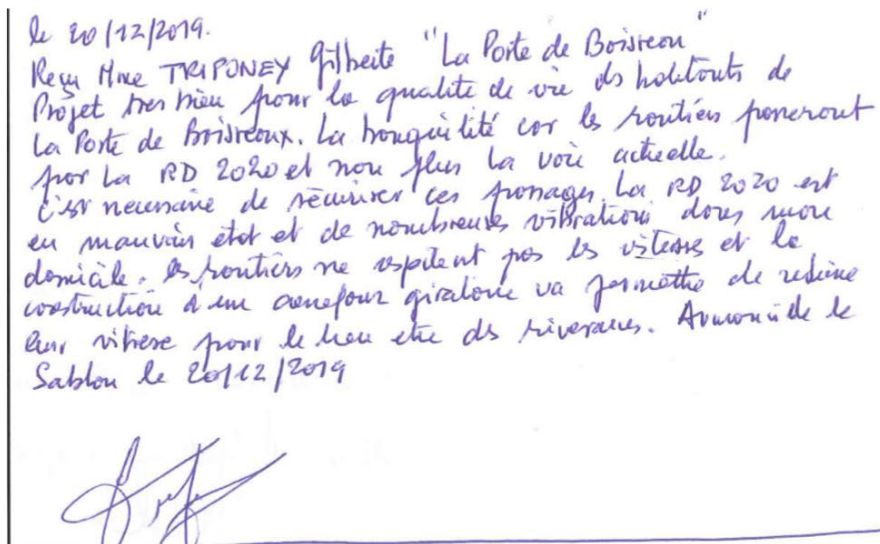 le 20/12/2019.
Reçu Mme TRIPONEY Gilberte "La Porte de Boisreau"
Projet tres bien pour la qualité de vie ds habitants de
La Porte de Boisreaux. La tranquilité car les routiers passeront
par La RD 2020 et non plus la voie actuelle.
C'est necessaire de sécuriser ces passages. La RD 2020 est
en mauvais état et de nombreuses vibrations dans mon
domicile. les routiers ne respectent pas les vitesses et la
construction d'un carrefour giratoire va permettre de reduire
leur vitesse pour le bien etre ds riverains. le
Sablon le 20/12/2019